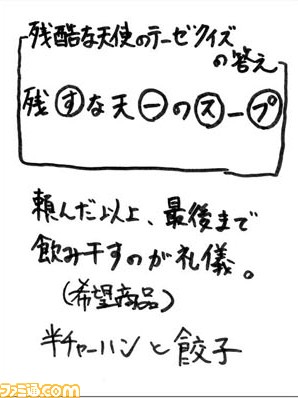 残酷な天使のテーゼクイズ
の答え
残すな天一のスープ
頼んだ以上、最後まで
飲み干すのが礼儀。
(希望商品)
半チャーハンと餃子
ファミ通.com